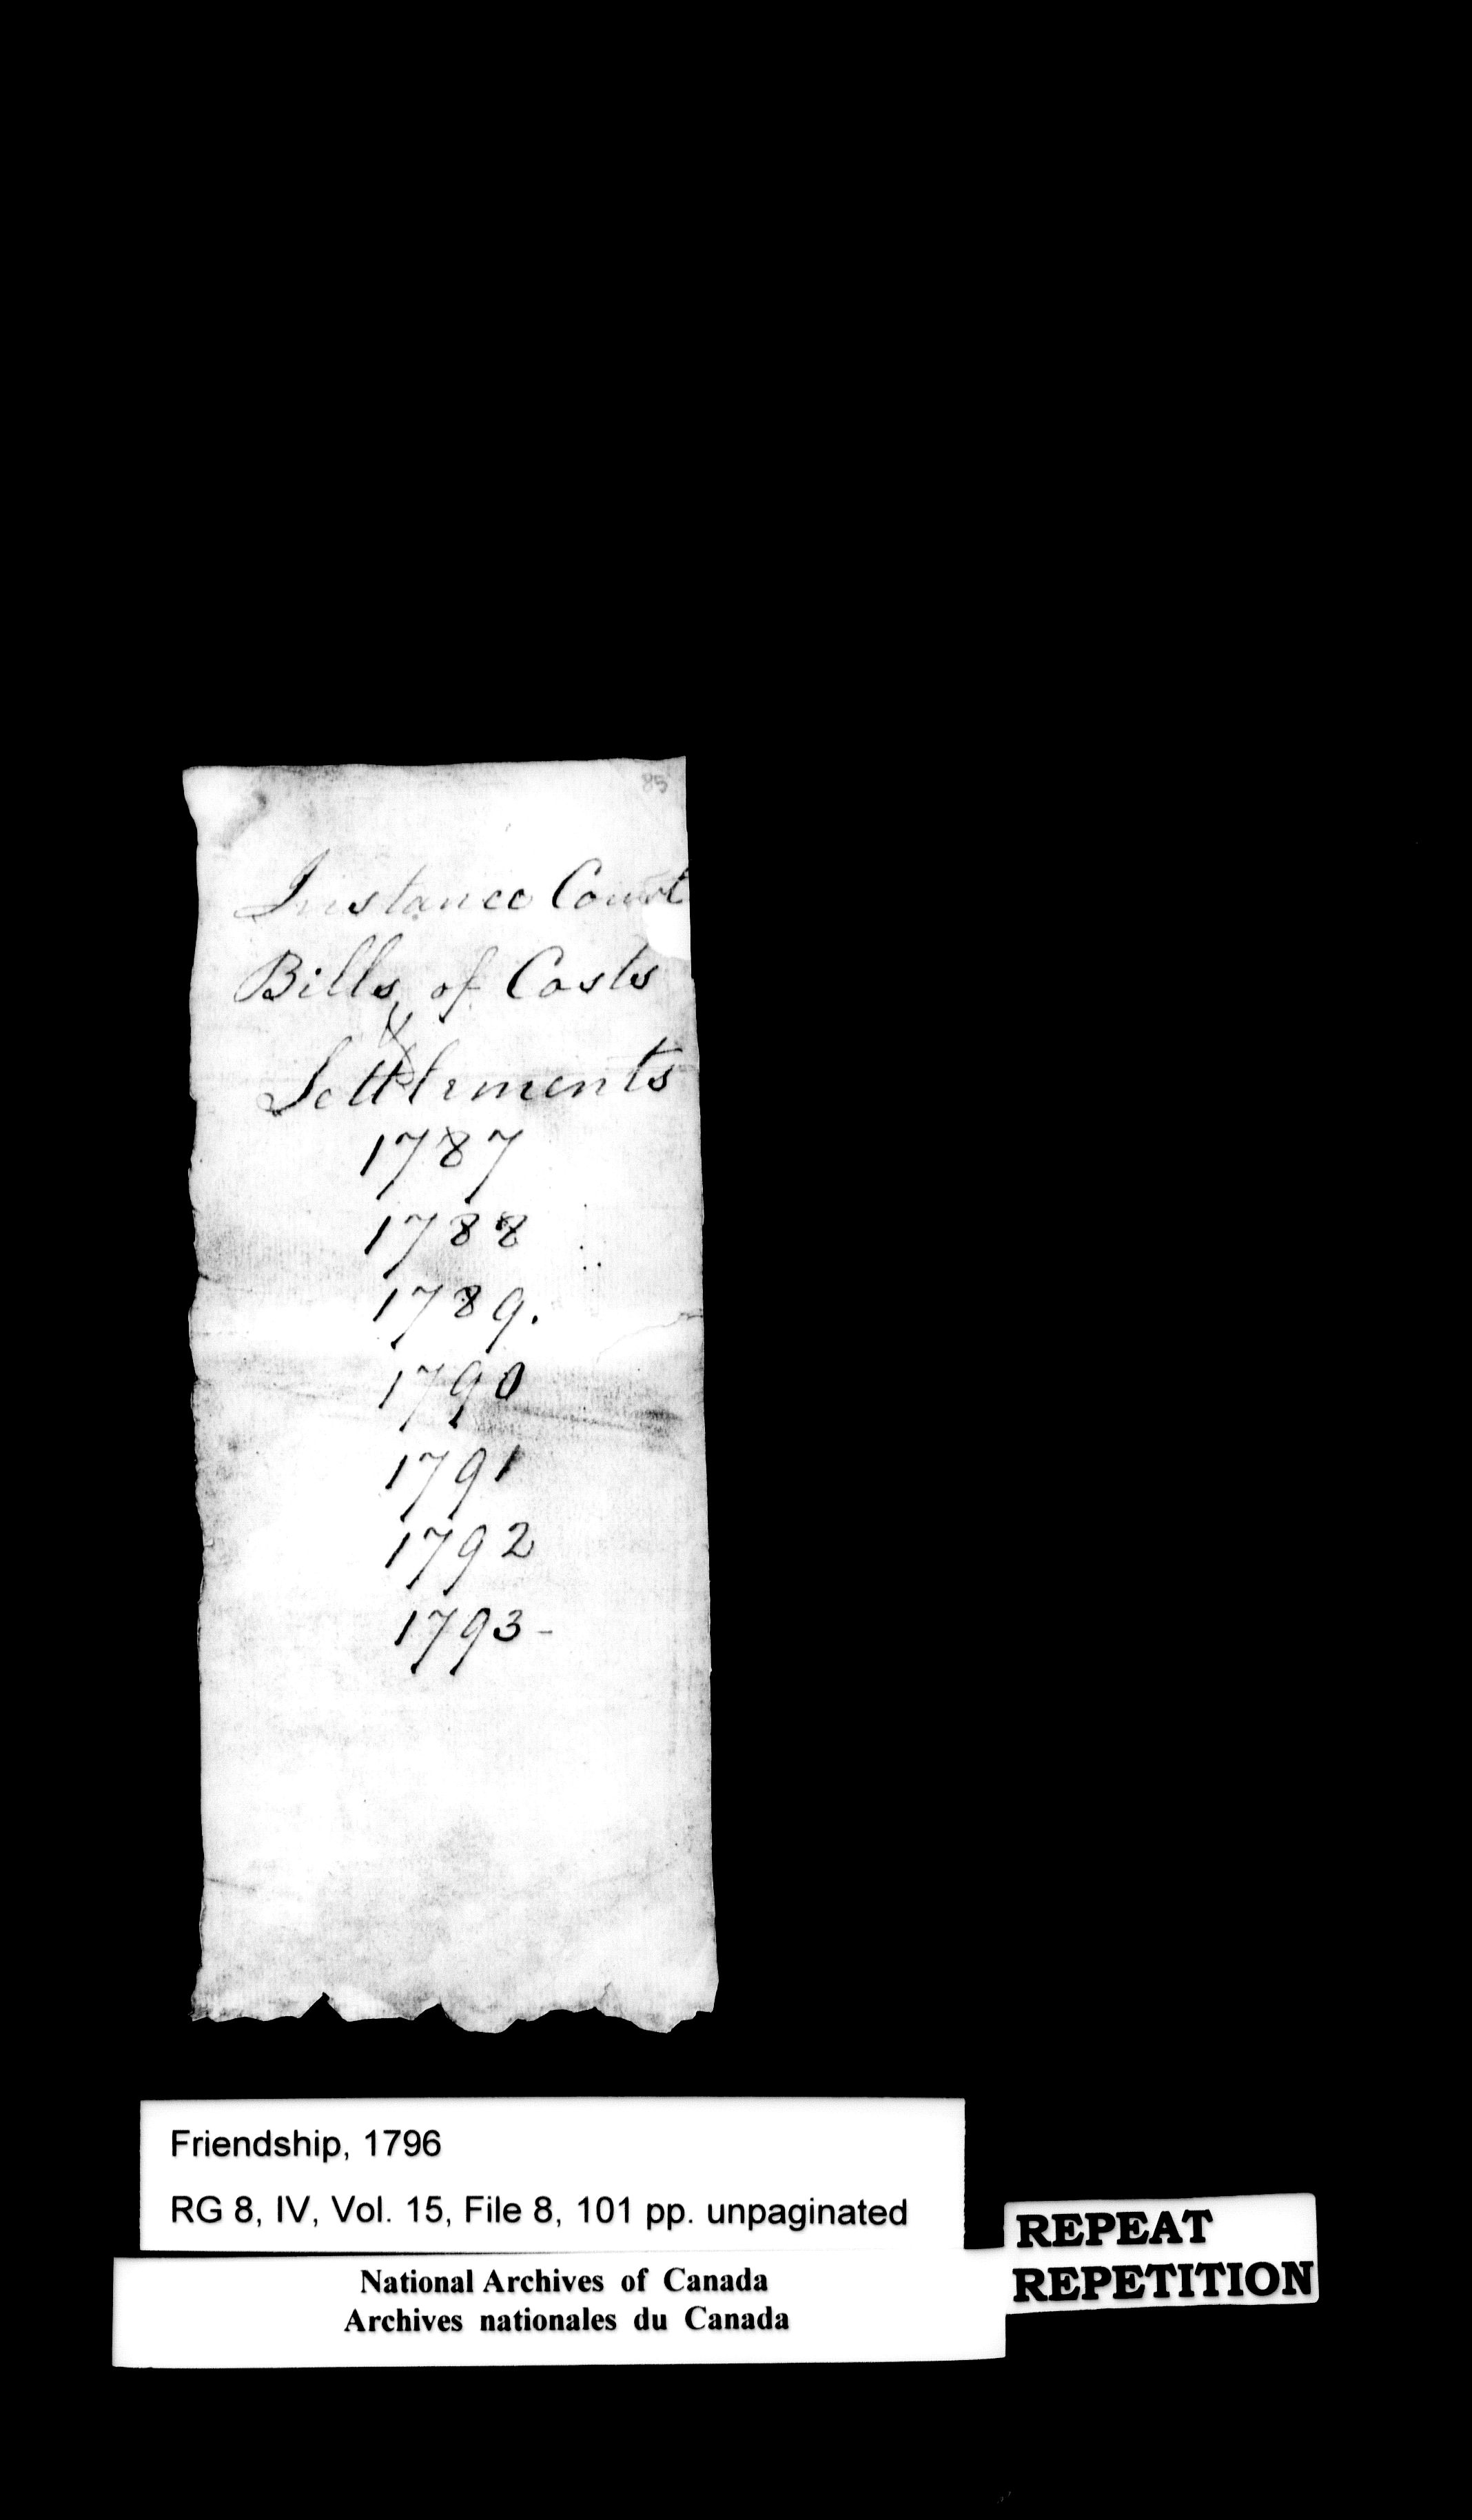 85
Instance Court
Bills of Costs
&
Settlements
1787
1788
1789.
1790
1791
1792
1793-
Friendship, 1796
RG 8, IV, Vol. 15, File 8, 101 pp. unpaginated
National Archives of Canada
Archives nationales du Canada
REPEAT
REPETITION